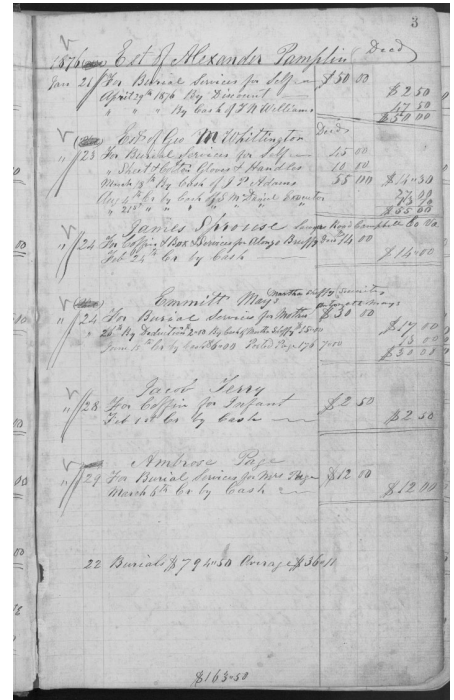 3
1876 Est of Alexander Pamplin Dec'd
Jan 21 For Burial Services for Self $50 00
April 29th 1876 By Discount $2 50
" " " By Cash of J W Williams 47 50
$50 00
Est of Geo M Whittington Dec'd
" 23 For Burial Services for Self 45 00
" Shirt Collar Gloves & Handles 10 00
March 8th By Cash of J P Adams 55 00 $14 30
Aug 4th Cr by Cash of S M Executor
" 21st " "
$55 00
James Sprouse Lawyers Road Campbell Co Va
" 24 For Coffin & Box & Services for Alonzo 14 00
Feb 24th Cr by Cash $14 00
Emmitt Mays Martha Securities
" 24 For Burial Services for Mother $30 00
26th By Deduction 2 00 By Cash 15 00 $17 00
June Cr by Cash $6 00 Posted Page 176 7 00 13 00
$30 00
Jacob Terry
" 28 For Coffin for Infant $2 50
Feb 1st Cr by Cash $2 50
Ambrose Page
" 29 For Burial Services for Mrs Page $12 00
March 8th Cr by Cash $12 00
22 Burials $794 50 Average $36 11
$163 50